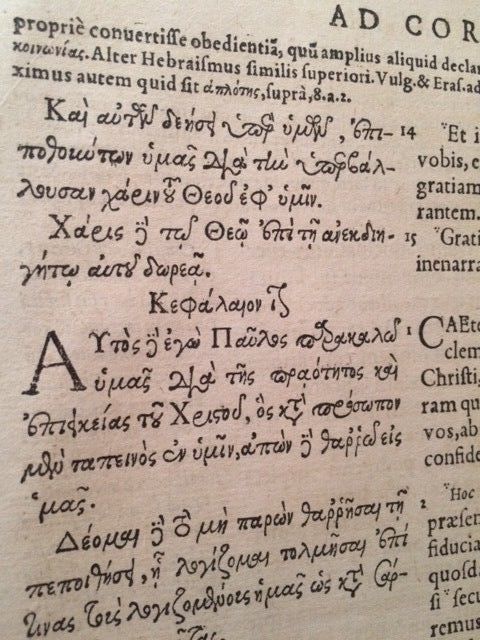 AD COR
propriè conuertisse obedientiã, quũ amplius aliquid decla
κοινωνίας. Alter Hebraismus similis superiori. Vulg. & Eras. ad
ximus autem quid sit ἁπλότης, suprà, 8.a.2.
Καὶ αὐτῶν δεήσει ὑπὲρ ὑμῶν, ἐπι-
ποθούντων ὑμᾶς διὰ τὴν ὑπερβάλ-
λουσαν χάριν τοῦ Θεοῦ ἐφ' ὑμῖν.
Χάρις δὲ τῷ Θεῷ ἐπὶ τῇ ἀνεκδιη-
γήτῳ αὐτοῦ δωρεᾷ.
Κεφάλαιον
Αὐτὸς δὲ ἐγὼ Παῦλος παρακαλῶ
ὑμᾶς διὰ τῆς πραότητος καὶ
ἐπιεικείας τοῦ Χριστοῦ, ὃς κατὰ πρόσωπον
μὲν ταπεινὸς ἐν ὑμῖν, ἀπὼν δὲ θαρρῶ εἰς
ὑμᾶς.
Δέομαι δὲ τὸ μὴ παρὼν θαρρῆσαι τῇ
πεποιθήσει, ᾗ λογίζομαι τολμῆσαι ἐπί
τινας τοὺς λογιζομένους ἡμᾶς ὡς κατὰ σάρ-
14 Et i
vobis, e
gratiam
rantem.
15 Grati
inenarra
1 CAEte
clem
Christi,
ram qu
vos, ab
confide
2 Hoc
præsen
fiducia
quosda
si secu
remus